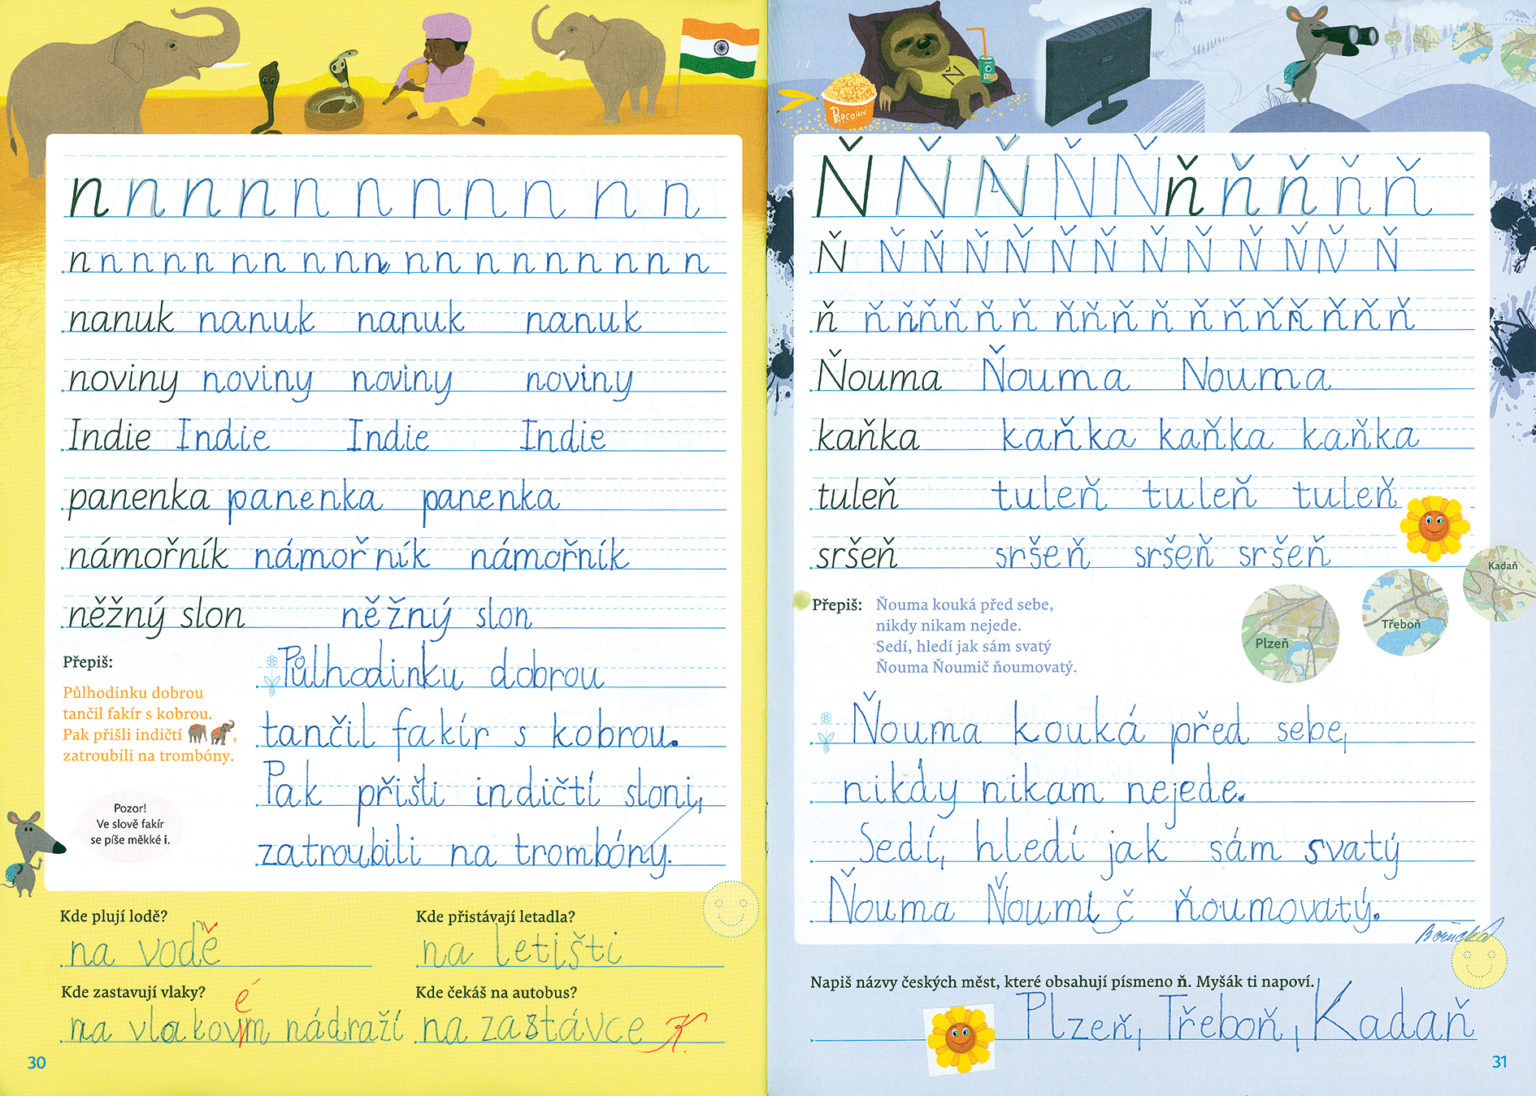 POPCORN
N
n n n n n n n n n n n
n n n n n n n n n n n n n n n n n n n
nanuk nanuk nanuk nanuk
noviny noviny noviny noviny
Indie Indie Indie Indie
panenka panenka panenka
námořník námořník námořník
něžný slon něžný slon
Přepiš:
Půlhodinku dobrou
tančil fakír s kobrou.
Pak přišli indičtí ,
zatroubili na trombóny.
Pozor!
Ve slově fakír
se píše měkké i.
Půlhodinku dobrou
tančil fakír s kobrou.
Pak přišli indičtí sloni,
zatroubili na trombóny.
Kde plují lodě?
na vodě
Kde přistávají letadla?
na letišti
Kde zastavují vlaky?
é
na vlakovím nádraží
Kde čekáš na autobus?
na zastávce K.
30
Ň Ň Ň Ň Ň ň ň ň ň ň
Ň Ň Ň Ň Ň Ň Ň Ň Ň Ň Ň Ň Ň
ň ň ň ň ň ň ň ň ň ň ň ň ň ň ň ň ň ň
Ňouma Ňouma Nouma
kaňka kaňka kaňka kaňka
tuleň tuleň tuleň tuleň
sršeň sršeň sršeň sršeň
Přepiš:
Ňouma kouká před sebe,
nikdy nikam nejede.
Sedí, hledí jak sám svatý
Ňouma Ňoumič ňoumovatý.
Plzeň
Třeboň
Kadaň
Ňouma kouká před sebe,
nikdy nikam nejede.
Sedí, hledí jak sám svatý
Ňouma Ňoumič ňoumovatý.
Napiš názvy českých měst, které obsahují písmeno ň. Myšák ti napoví.
Plzeň, Třeboň, Kadaň
31